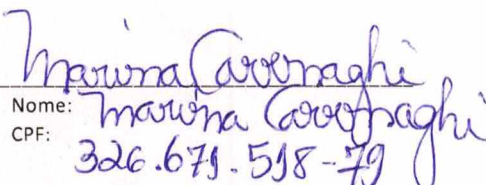 Marina Cavenaghi
Nome: Marina Cavenaghi
CPF: 326.679.598-79